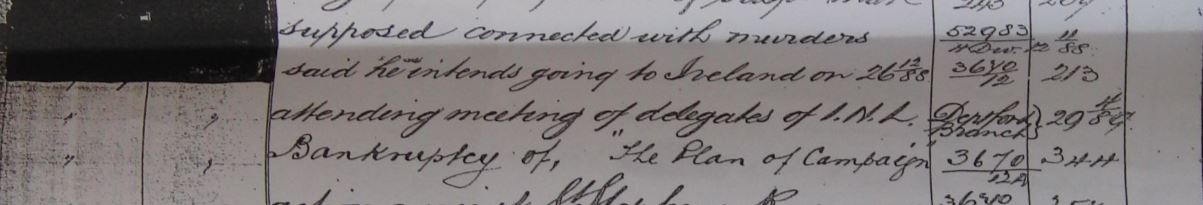 supposed connected with murders 52983 11/88
4 Div. 12
said he intends going to Ireland on 26 12/88 3680/12 213
attending meeting of delegates of I.N.L. Deptford Branch } 29 4/89
" " Bankruptcy of, "The Plan of Campaign" 3670/12A 344